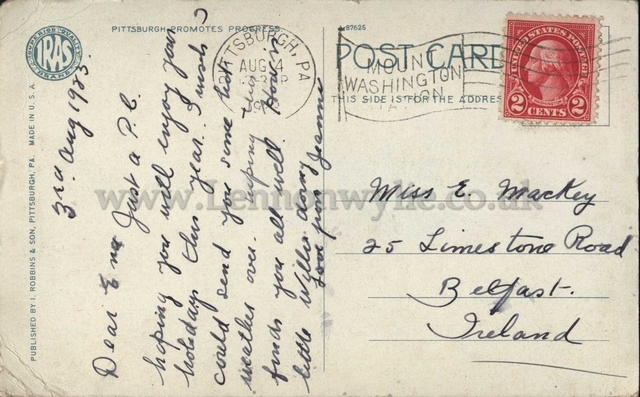 PITTSBURGH PROMOTES PROGRESS
A-87625
POST CARD
THIS SIDE IS FOR THE ADDRESS
PITTSBURGH, PA
AUG 4
MOUNT
WASHINGTON
UNITED STATES POSTAGE
2 CENTS 2
IRAS
PUBLISHED BY I. ROBBINS & SON, PITTSBURGH, PA. MADE IN U.S.A.
3rd Aug 1923.
Dear Ena Just a P.C.
hoping you will enjoy your
holidays this year. I wish I
could send you some hot
weather over. Hoping this
finds you all well. How is
little Willie doing
love from Jeannie
Miss E. Mackey
25 Limestone Road
Belfast.
Ireland
www.Lennonwylie.co.uk